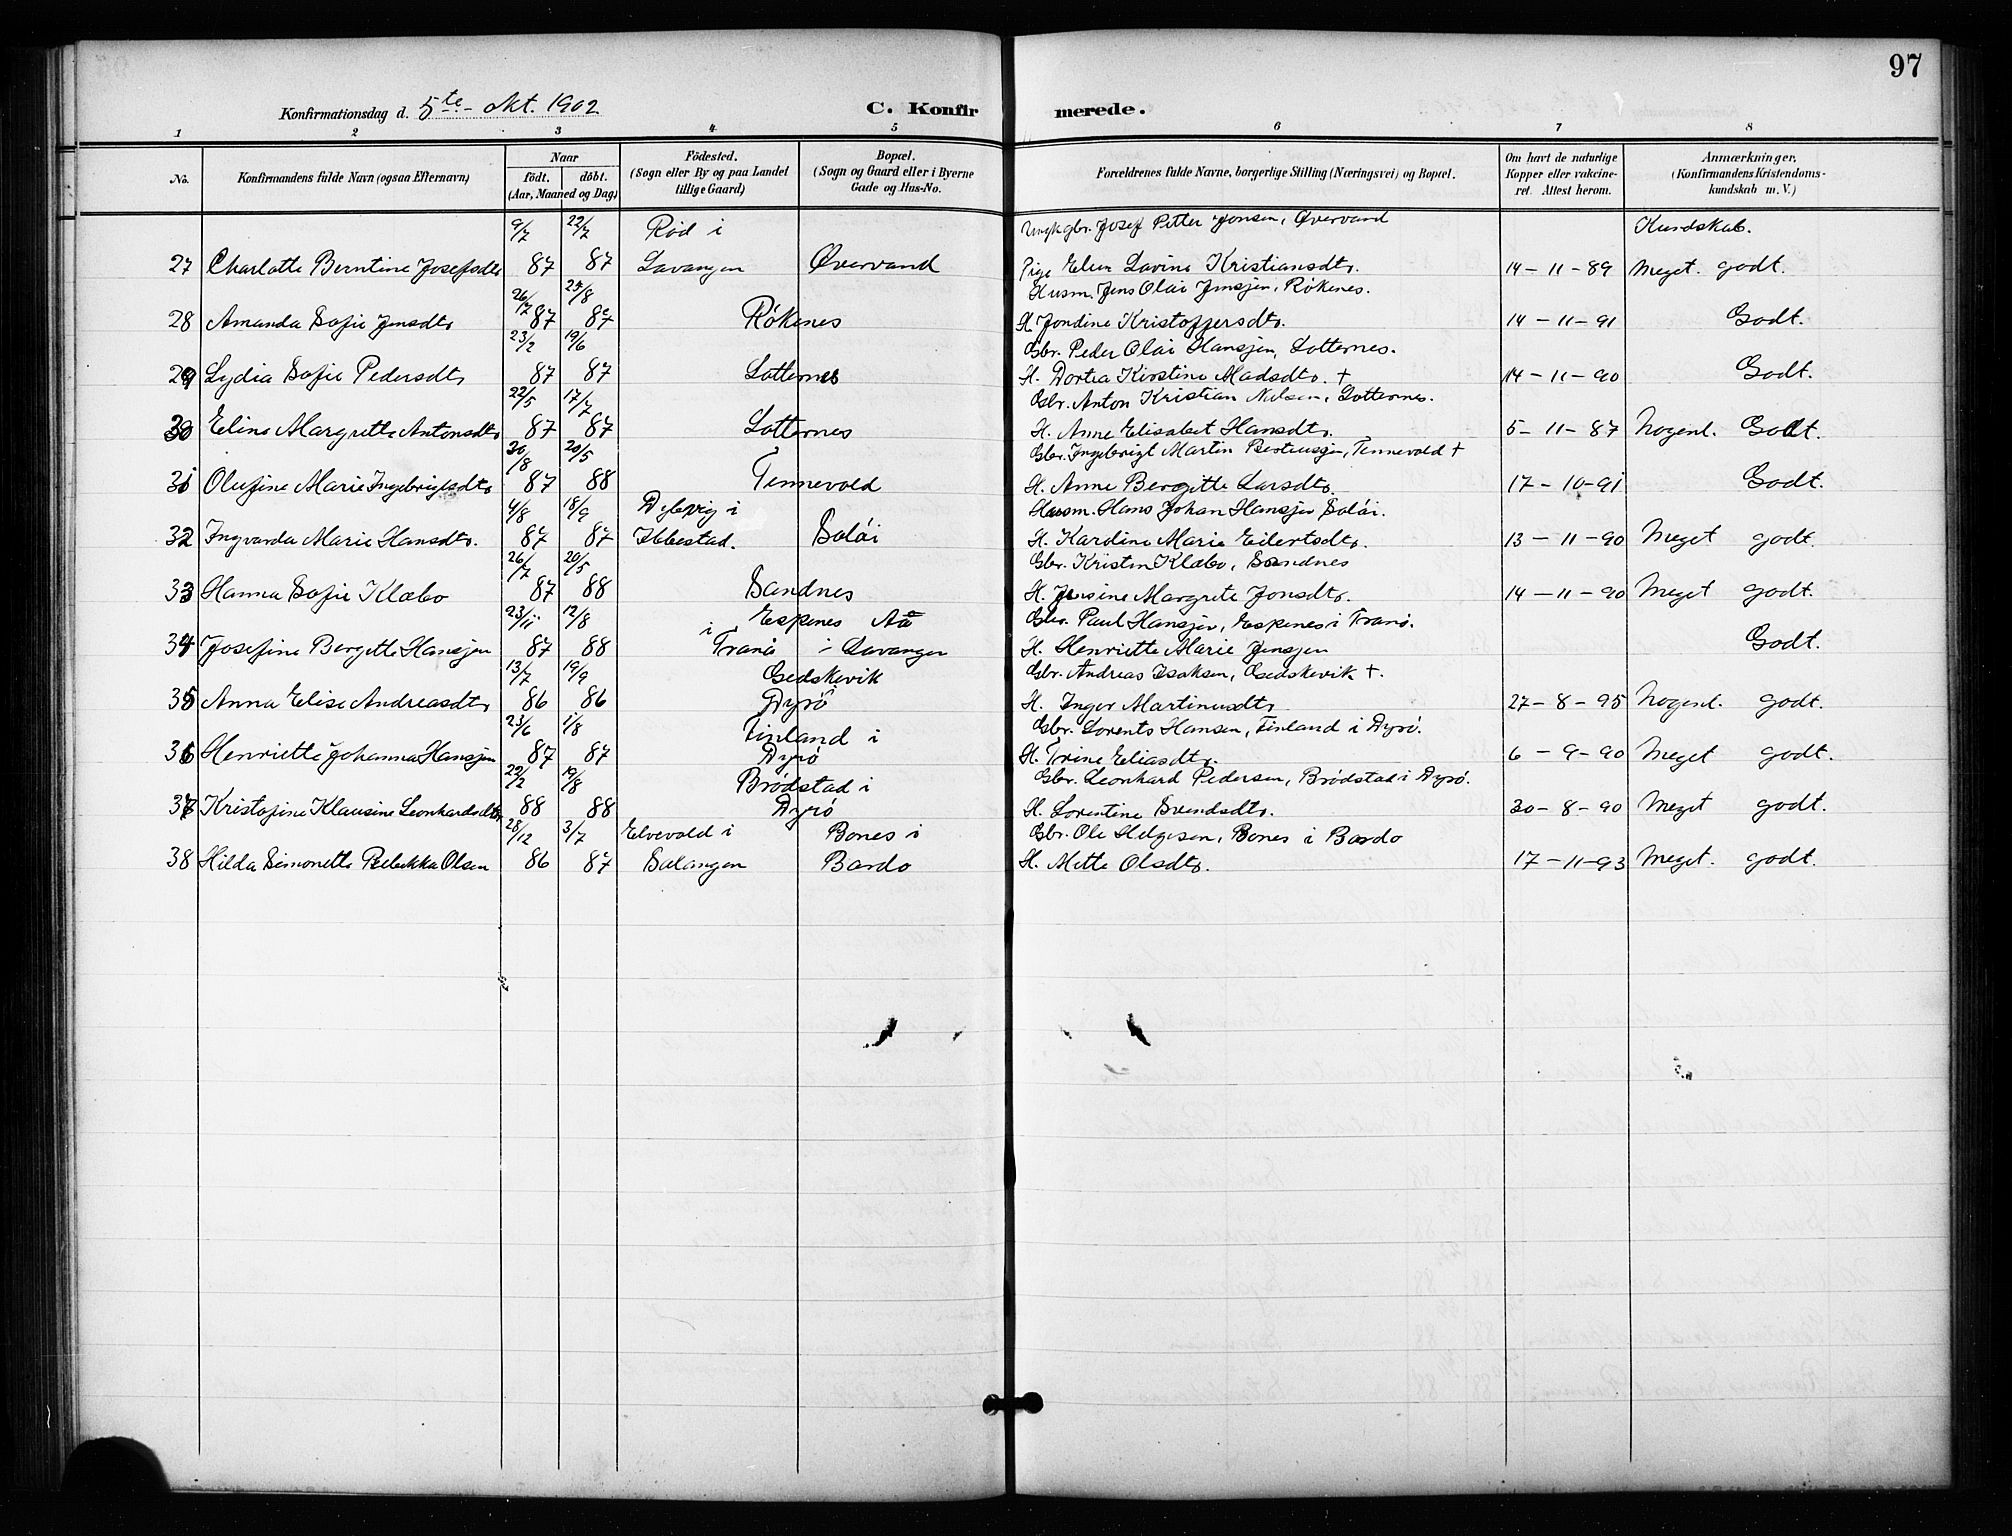 97
Konfirmationsdag d. 5te Okt. 1902 C. Konfirmerede.
1 2 3 4 5 6 7 8
No. Konfirmandens fulde Navn (ogsaa Efternavn) Naar født. døbt. (Aar, Maaned og Dag) Fødested. (Sogn eller By og paa Landet tillige Gaard) Bopæl. (Sogn og Gaard eller i Byerne Gade og Hus-No.) Forældrenes fulde Navne, borgerlige Stilling (Næringsvei) og Bopæl. Om havt de naturlige Kopper eller vakcineret. Attest herom. Anmærkninger, (Konfirmandens Kristendomskundskab m. V.)
9/7 22/7 Rød i Ungkgbr. Josef Petter Jonsen, Øvervand Kundskab.
27 Charlotte Berntine Josefsdtr 87 87 Lavangen Øvervand Pige Elen Lavine Kristiansdtr. 14-11-89 Meget. godt.
26/12 25/8 Husm. Jens Olai Jensen, Røkenes.
28 Amanda Sofie Jensdtr 87 87 Røkenes H. Jondine Kristoffersdtr. 14-11-91 Godt.
23/2 19/6 Gbr. Peder Olai Hansen, Lotternes.
29 Lydia Sofie Pedersdtr 87 87 Lotternes H. Dortea Kirstine Madsdtr. † 14-11-90 Godt.
22/5 17/7 Gbr. Anton Kristian Nilsen, Lotternes.
30 Eline Margrette Antonsdtr 87 87 Lotternes H. Anne Elisabet Hansdtr. 5-11-87 Nogenl. Godt.
30/8 20/5 Gbr. Ingebrigt Martin Tennevold †
31 Olufine Marie Ingebrigtsdtr 87 88 Tennevold H. Anne Bergitte Larsdtr. 17-10-91 Godt.
4/8 18/9 Dybvig i Husm. Hans Johan Hansen Soløi.
32 Ingvarda Marie Hansdtr. 87 87 Ibbestad. Soløi H. Kardine Marie Eilertsdtr. 13-11-90 Meget godt.
26/7 20/5 Gbr. Kristen Klæbo, Sandnes
33 Hanna Sofie Klæbo 87 88 Sandnes H. Jensine Margrete Jonsdtr. 14-11-90 Meget godt.
23/11 12/8 Espenes Aa Gbr. Paul Hansen, Espenes i Tranø.
34 Josefine Bergette Hansen 87 88 i Tranø i Lavangen H. Henriette Marie Jensen Godt.
13/7 19/9 Gedskevik Gbr. Andreas Isaksen, Gedskevik †.
35 Anna Elise Andreasdtr 86 86 Dyrø H. Inger Martinusdtr 27-8-95 Nogenl. godt.
23/6 1/8 Finland i Gbr. Lorents Hansen, Finland i Dyrø.
36 Henriette Johanna Hansen 87 87 Dyrø H. Trine Eliasdtr. 6-9-90 Meget godt.
29/2 19/8 Brødstad i Gbr. Leonhard Pedersen, Brødstad i Dyrø.
37 Kristofine Klausine Leonhardsdtr 88 88 Dyrø H. Lorentine Svendsdtr. 30-8-90 Meget godt.
28/12 3/7 Elvevold i Bones i Gbr. Ole Helgesen, Bones i Bardo
38 Hilda Simonette Rebekka Olsen 86 87 Salangen Bardo H. Mette Olsdtr. 17-11-93 Meget. godt.